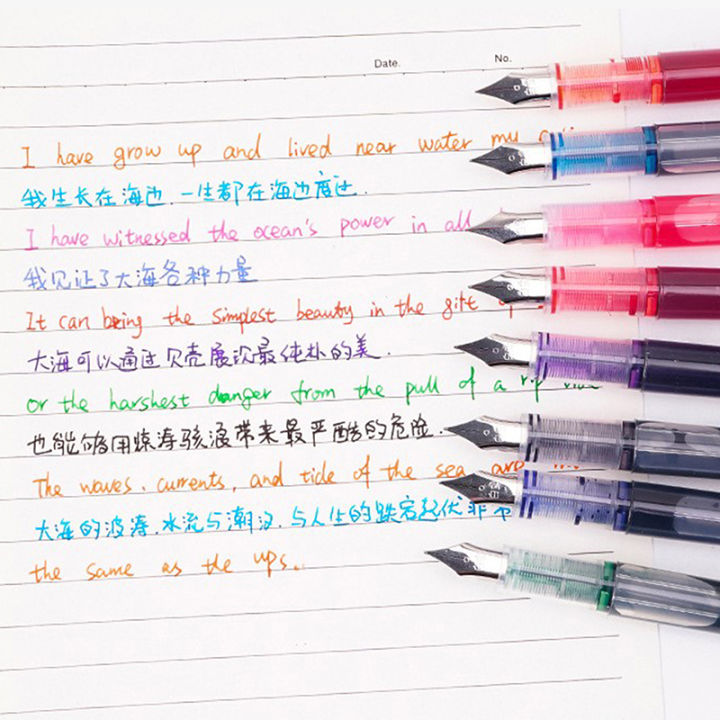 Date.
No.
I have grow up and lived near water my
我生长在海边,一生都在海边度过.
I have witnessed the ocean's power in all
我见证了大海各种力量
It can bring the simplest beauty in the gift
大海可以通过贝壳展示最纯朴的美.
or the harshest danger from the pull of a rip
也能够用惊涛骇浪带来最严酷的危险.
The waves, currents, and tide of the sea are
大海的波涛,水流与潮汐,与人生的跌宕起伏非常
the same as the ups.